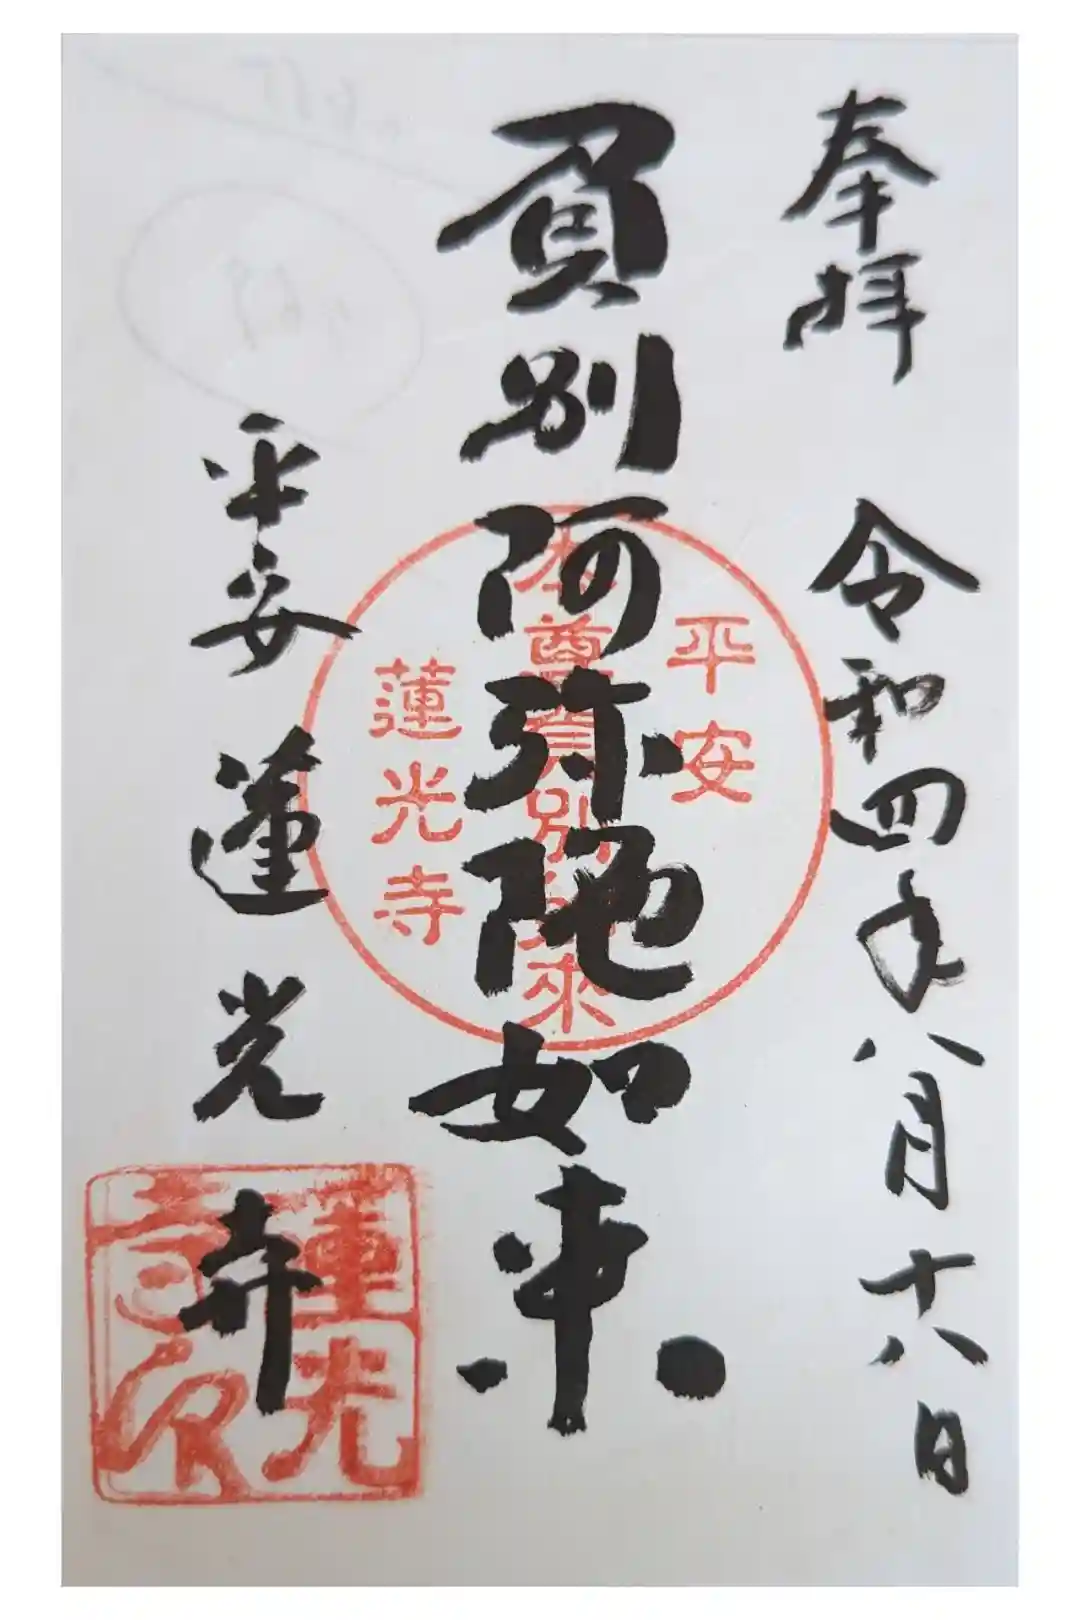 奉拝 令和四年八月十八日
負別阿弥陀如来
平安 蓮光寺
平安
本尊負別如来
蓮光寺
蓮光